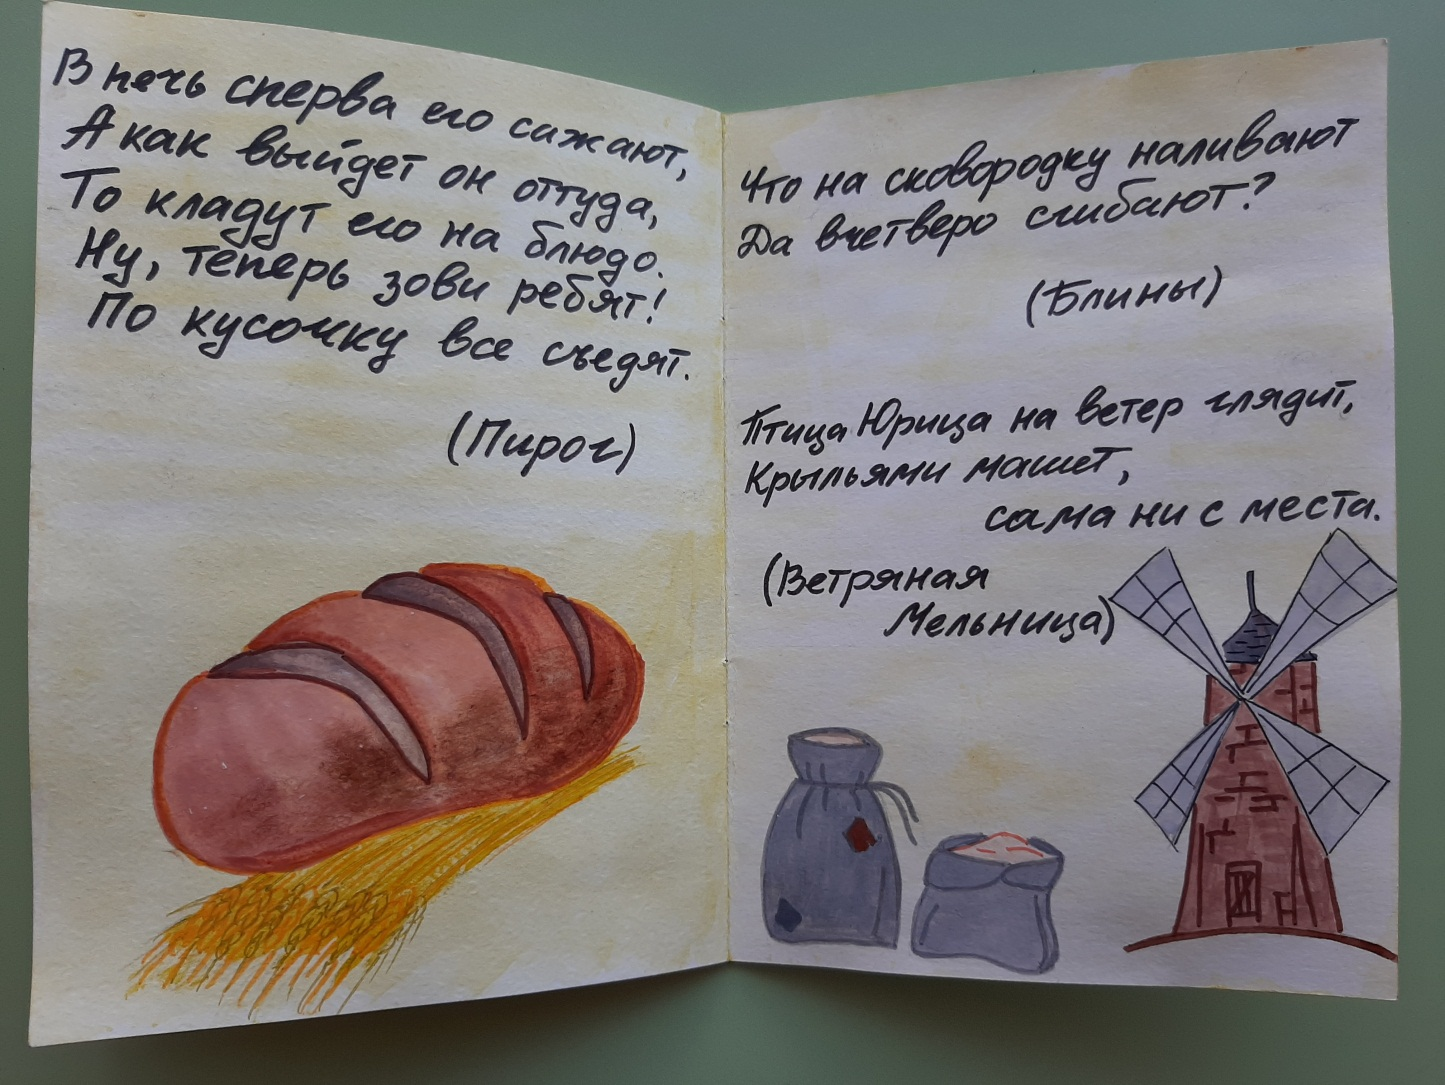 В печь сперва его сажают,
А как выйдет он оттуда,
То кладут его на блюдо.
Ну, теперь зови ребят!
По кусочку все съедят.
(Пирог)
Что на сковородку наливают
Да вчетверо сгибают?
(Блины)
Птица Юрица на ветер глядит,
Крыльями машет,
сама ни с места.
(Ветряная
Мельница)